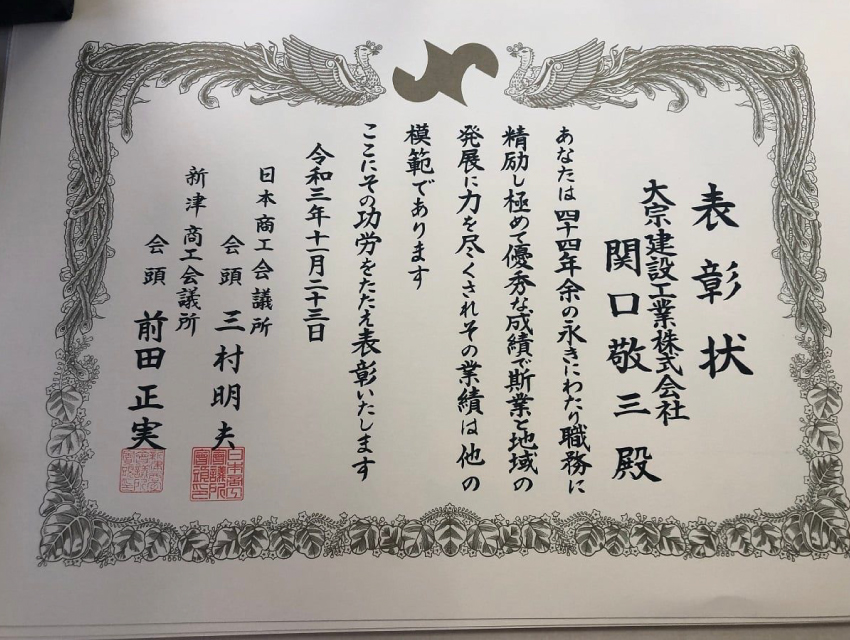 表彰状
大宗建設工業株式会社
関口敬三殿
あなたは四十四年余の永きにわたり職務に
精励し極めて優秀な成績で斯業と地域の
発展に力を尽くされその業績は他の
模範であります
ここにその功労をたたえ表彰いたします
令和三年十一月二十三日
日本商工会議所
会頭 三村明夫
新津商工会議所
会頭 前田正実